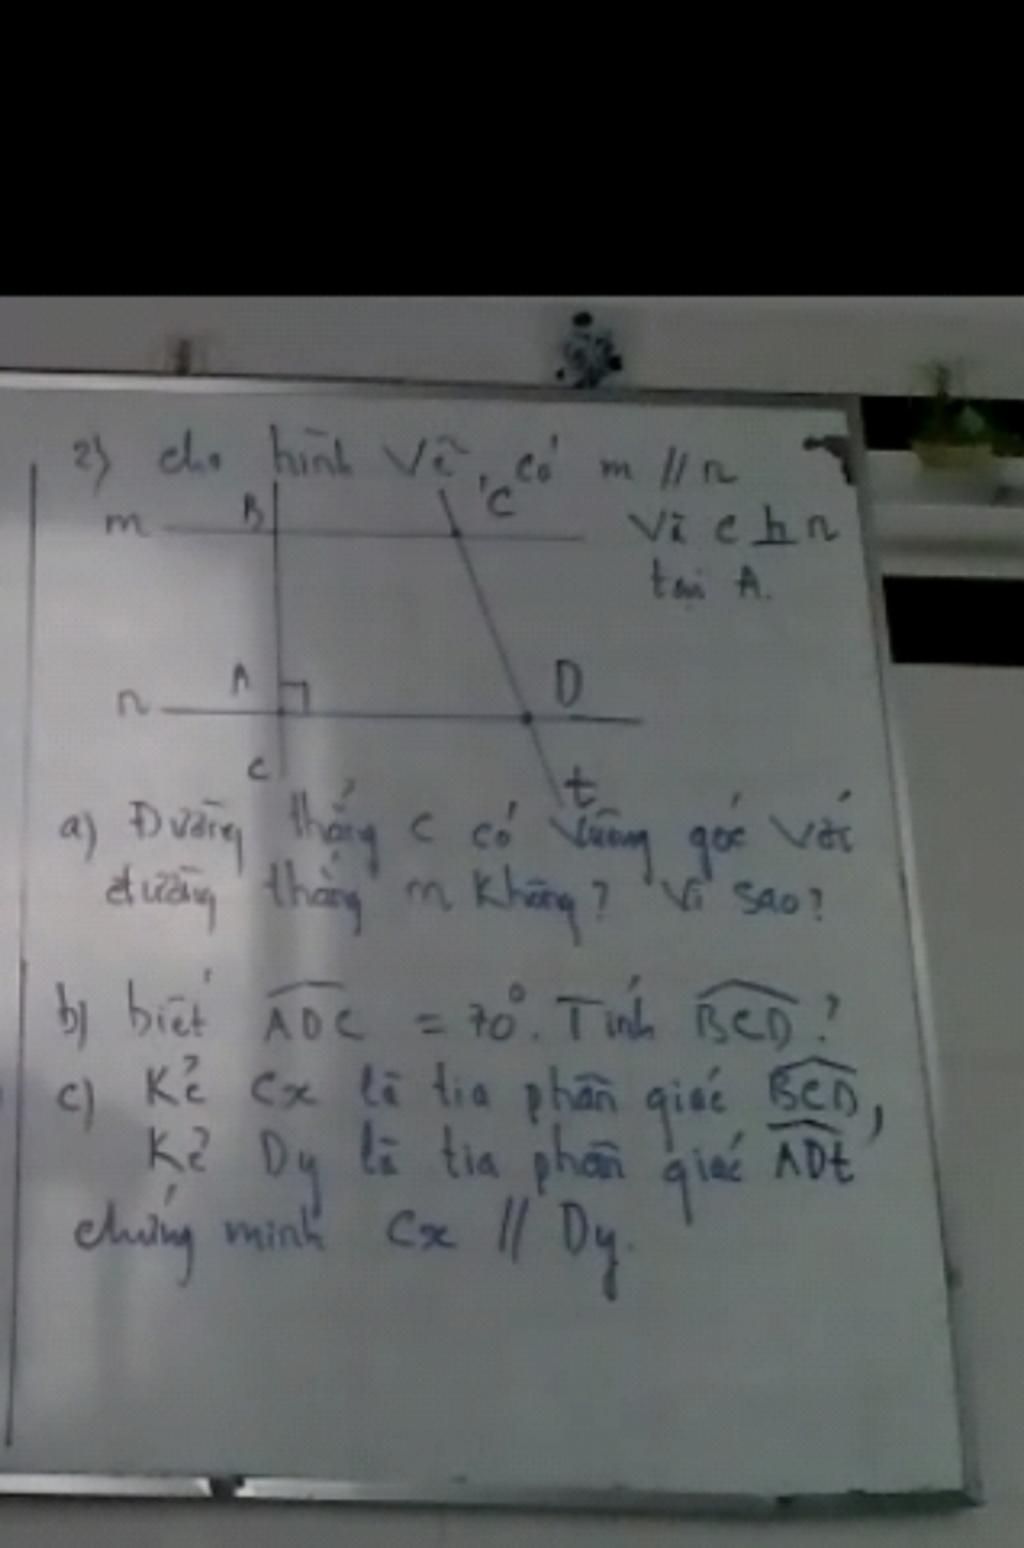 2) cho hình vẽ, có m // n
m B C và c ⊥ n
tại A.
A D
n
c t
a) Đường thẳng c có vuông góc với
đường thẳng m không? Vì sao?
b) biết ADC = 70°. Tính BCD?
c) Kẻ Cx là tia phân giác BCD,
Kẻ Dy là tia phân giác ADt
chứng minh Cx // Dy.